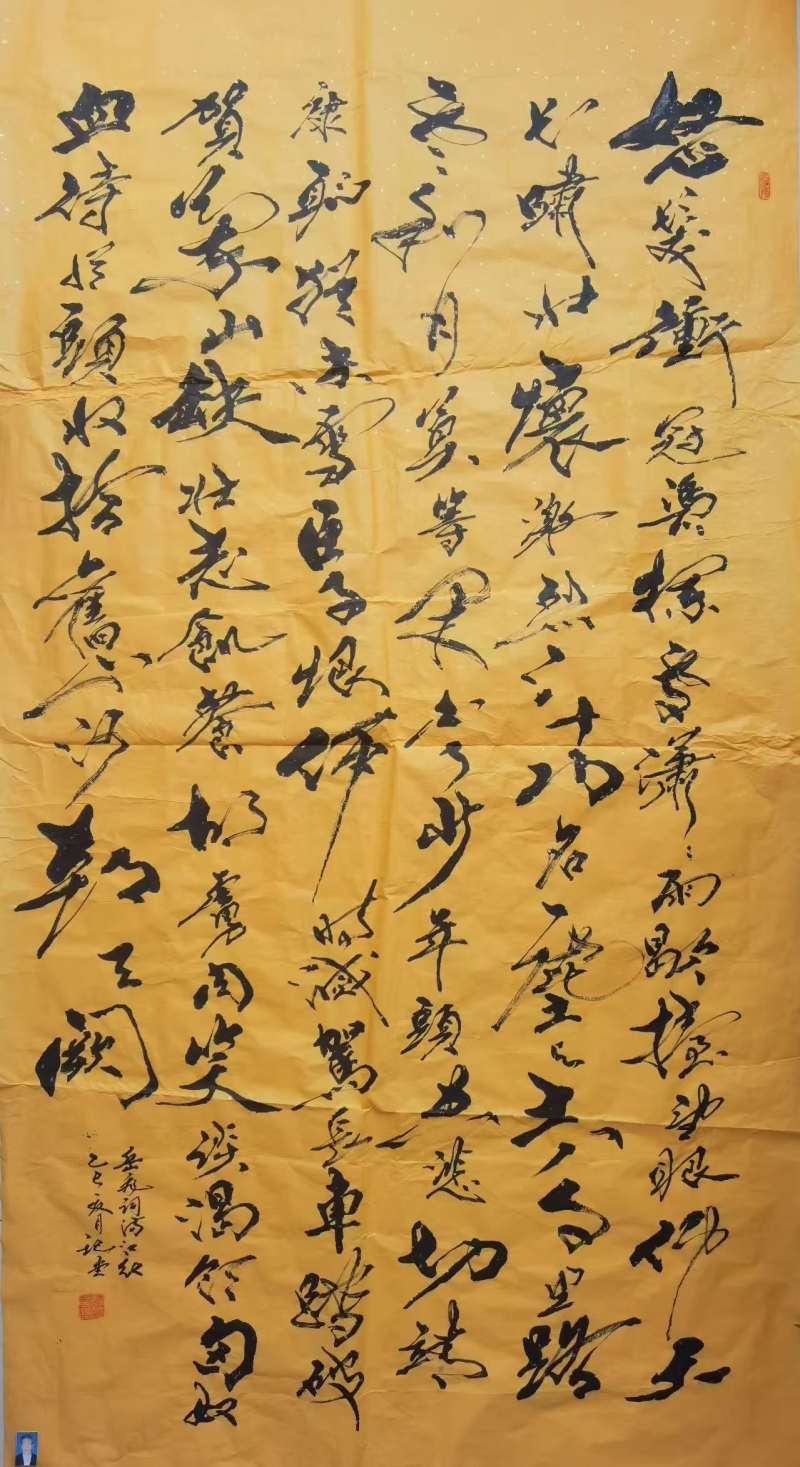 怒髮衝冠憑欄處瀟〻雨歇擡望眼仰天
长嘯壯懷激烈三十功名塵与土八千里路
雲和月莫等閑白了少年頭空悲切靖
康恥猶未雪臣子恨何時滅駕長車踏破
賀蘭山缺壯志飢餐胡虜肉笑談渴飲匈奴
血待從頭收拾舊山河朝天闕
岳飛詞滿江紅
乙巳夏月